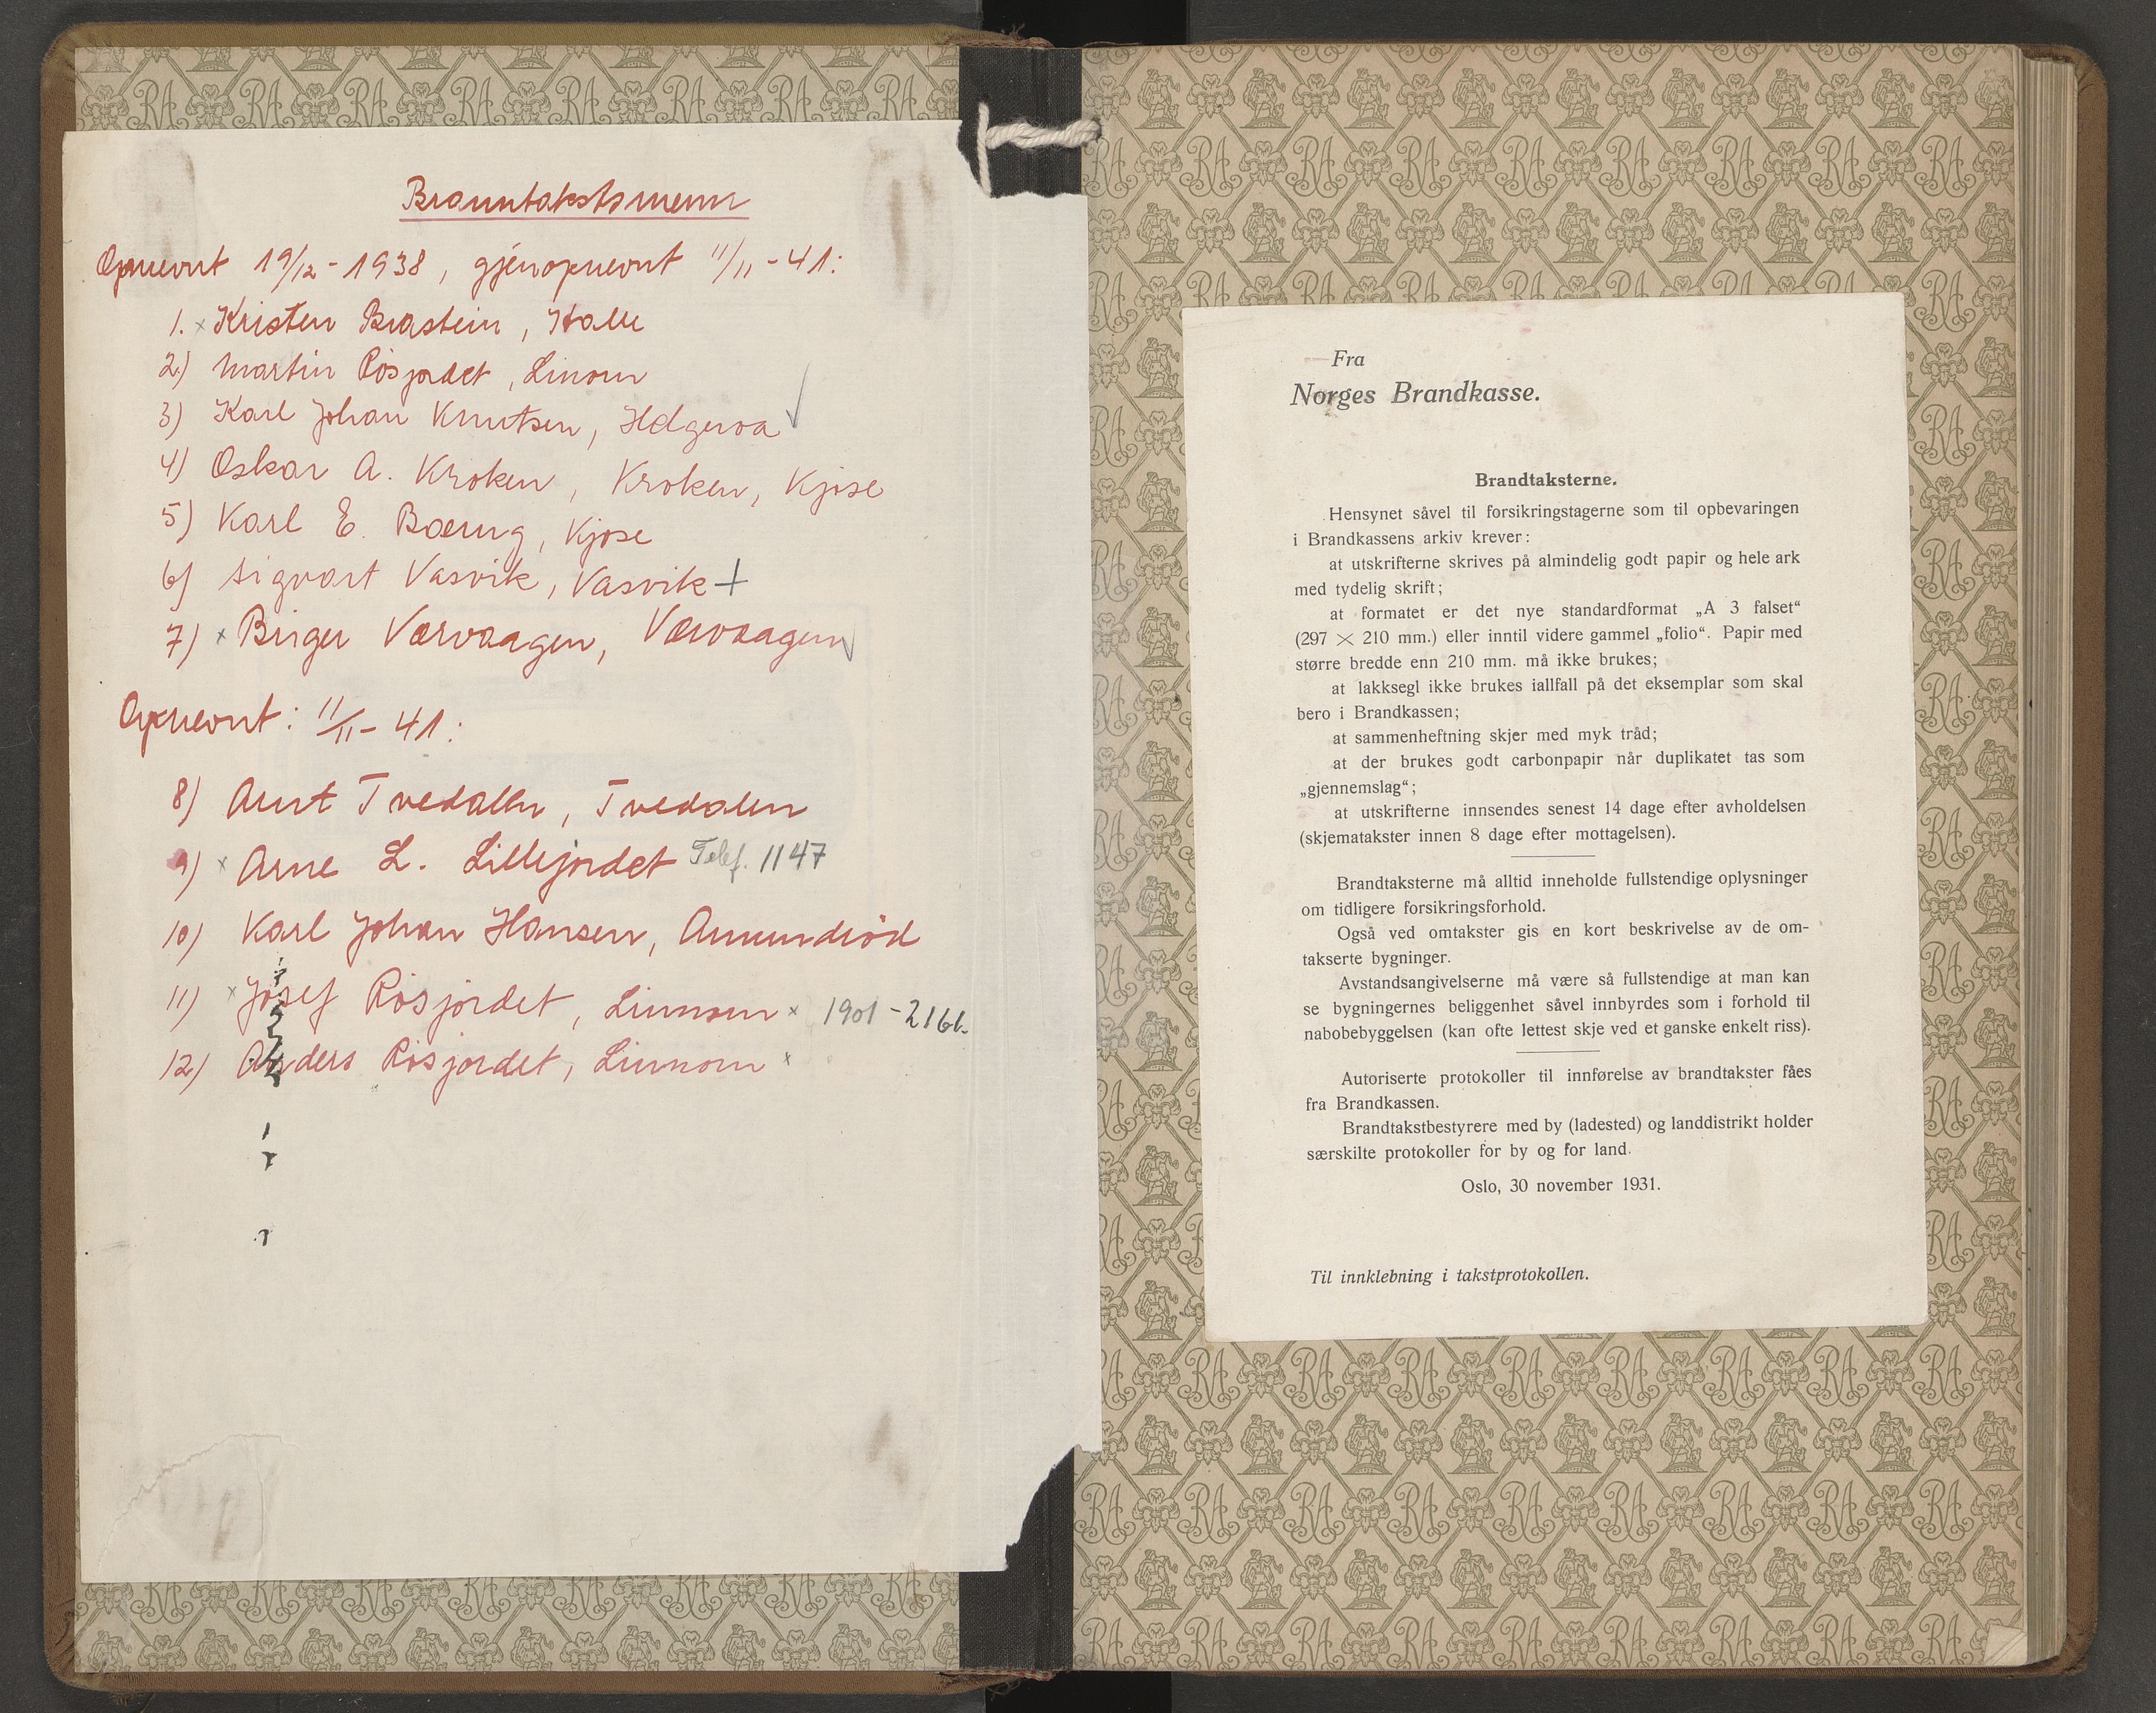 Branntakstsmenn
Opnevnt 19/12 - 1938, gjenopnevnt 11/11 - 41:
1. x Kristen Brastein, Halle
2) Martin Rösjordet, Linom
3) Karl Johan Knutsen, Helgeroa √
4) Oskar A. Kroken, Kroken, Kjose
5) Karl E. Bærug, Kjose
6) Sigvart Vasvik, Vasvik +
7) x Birger Værvaagen, Værvaagen √
Opnevnt: 11/11 - 41:
8) Arnt Tvedalen, Tvedalen
9) x Arne L. Lillejordet Telef. 1147
10) Karl Johan Hansen, Amundröd
11) x Josef Rösjordet, Linnom x 1901 - 2161.
12) Anders Rösjordet, Linnom x
Fra
Norges Brandkasse.
Brandtaksterne.
Hensynet såvel til forsikringstagerne som til opbevaringen
i Brandkassens arkiv krever:
at utskrifterne skrives på almindelig godt papir og hele ark
med tydelig skrift;
at formatet er det nye standardformat „A 3 falset“
(297 × 210 mm.) eller inntil videre gammel „folio“. Papir med
større bredde enn 210 mm. må ikke brukes;
at lakksegl ikke brukes iallfall på det eksemplar som skal
bero i Brandkassen;
at sammenheftning skjer med myk tråd;
at der brukes godt carbonpapir når duplikatet tas som
„gjennemslag“;
at utskrifterne innsendes senest 14 dage efter avholdelsen
(skjematakster innen 8 dage efter mottagelsen).
Brandtaksterne må alltid inneholde fullstendige oplysninger
om tidligere forsikringsforhold.
Også ved omtakster gis en kort beskrivelse av de om-
takserte bygninger.
Avstandsangivelserne må være så fullstendige at man kan
se bygningernes beliggenhet såvel innbyrdes som i forhold til
nabobebyggelsen (kan ofte lettest skje ved et ganske enkelt riss).
Autoriserte protokoller til innførelse av brandtakster fåes
fra Brandkassen.
Brandtakstbestyrere med by (ladested) og landdistrikt holder
særskilte protokoller for by og for land.
Oslo, 30 november 1931.
Til innklebning i takstprotokollen.